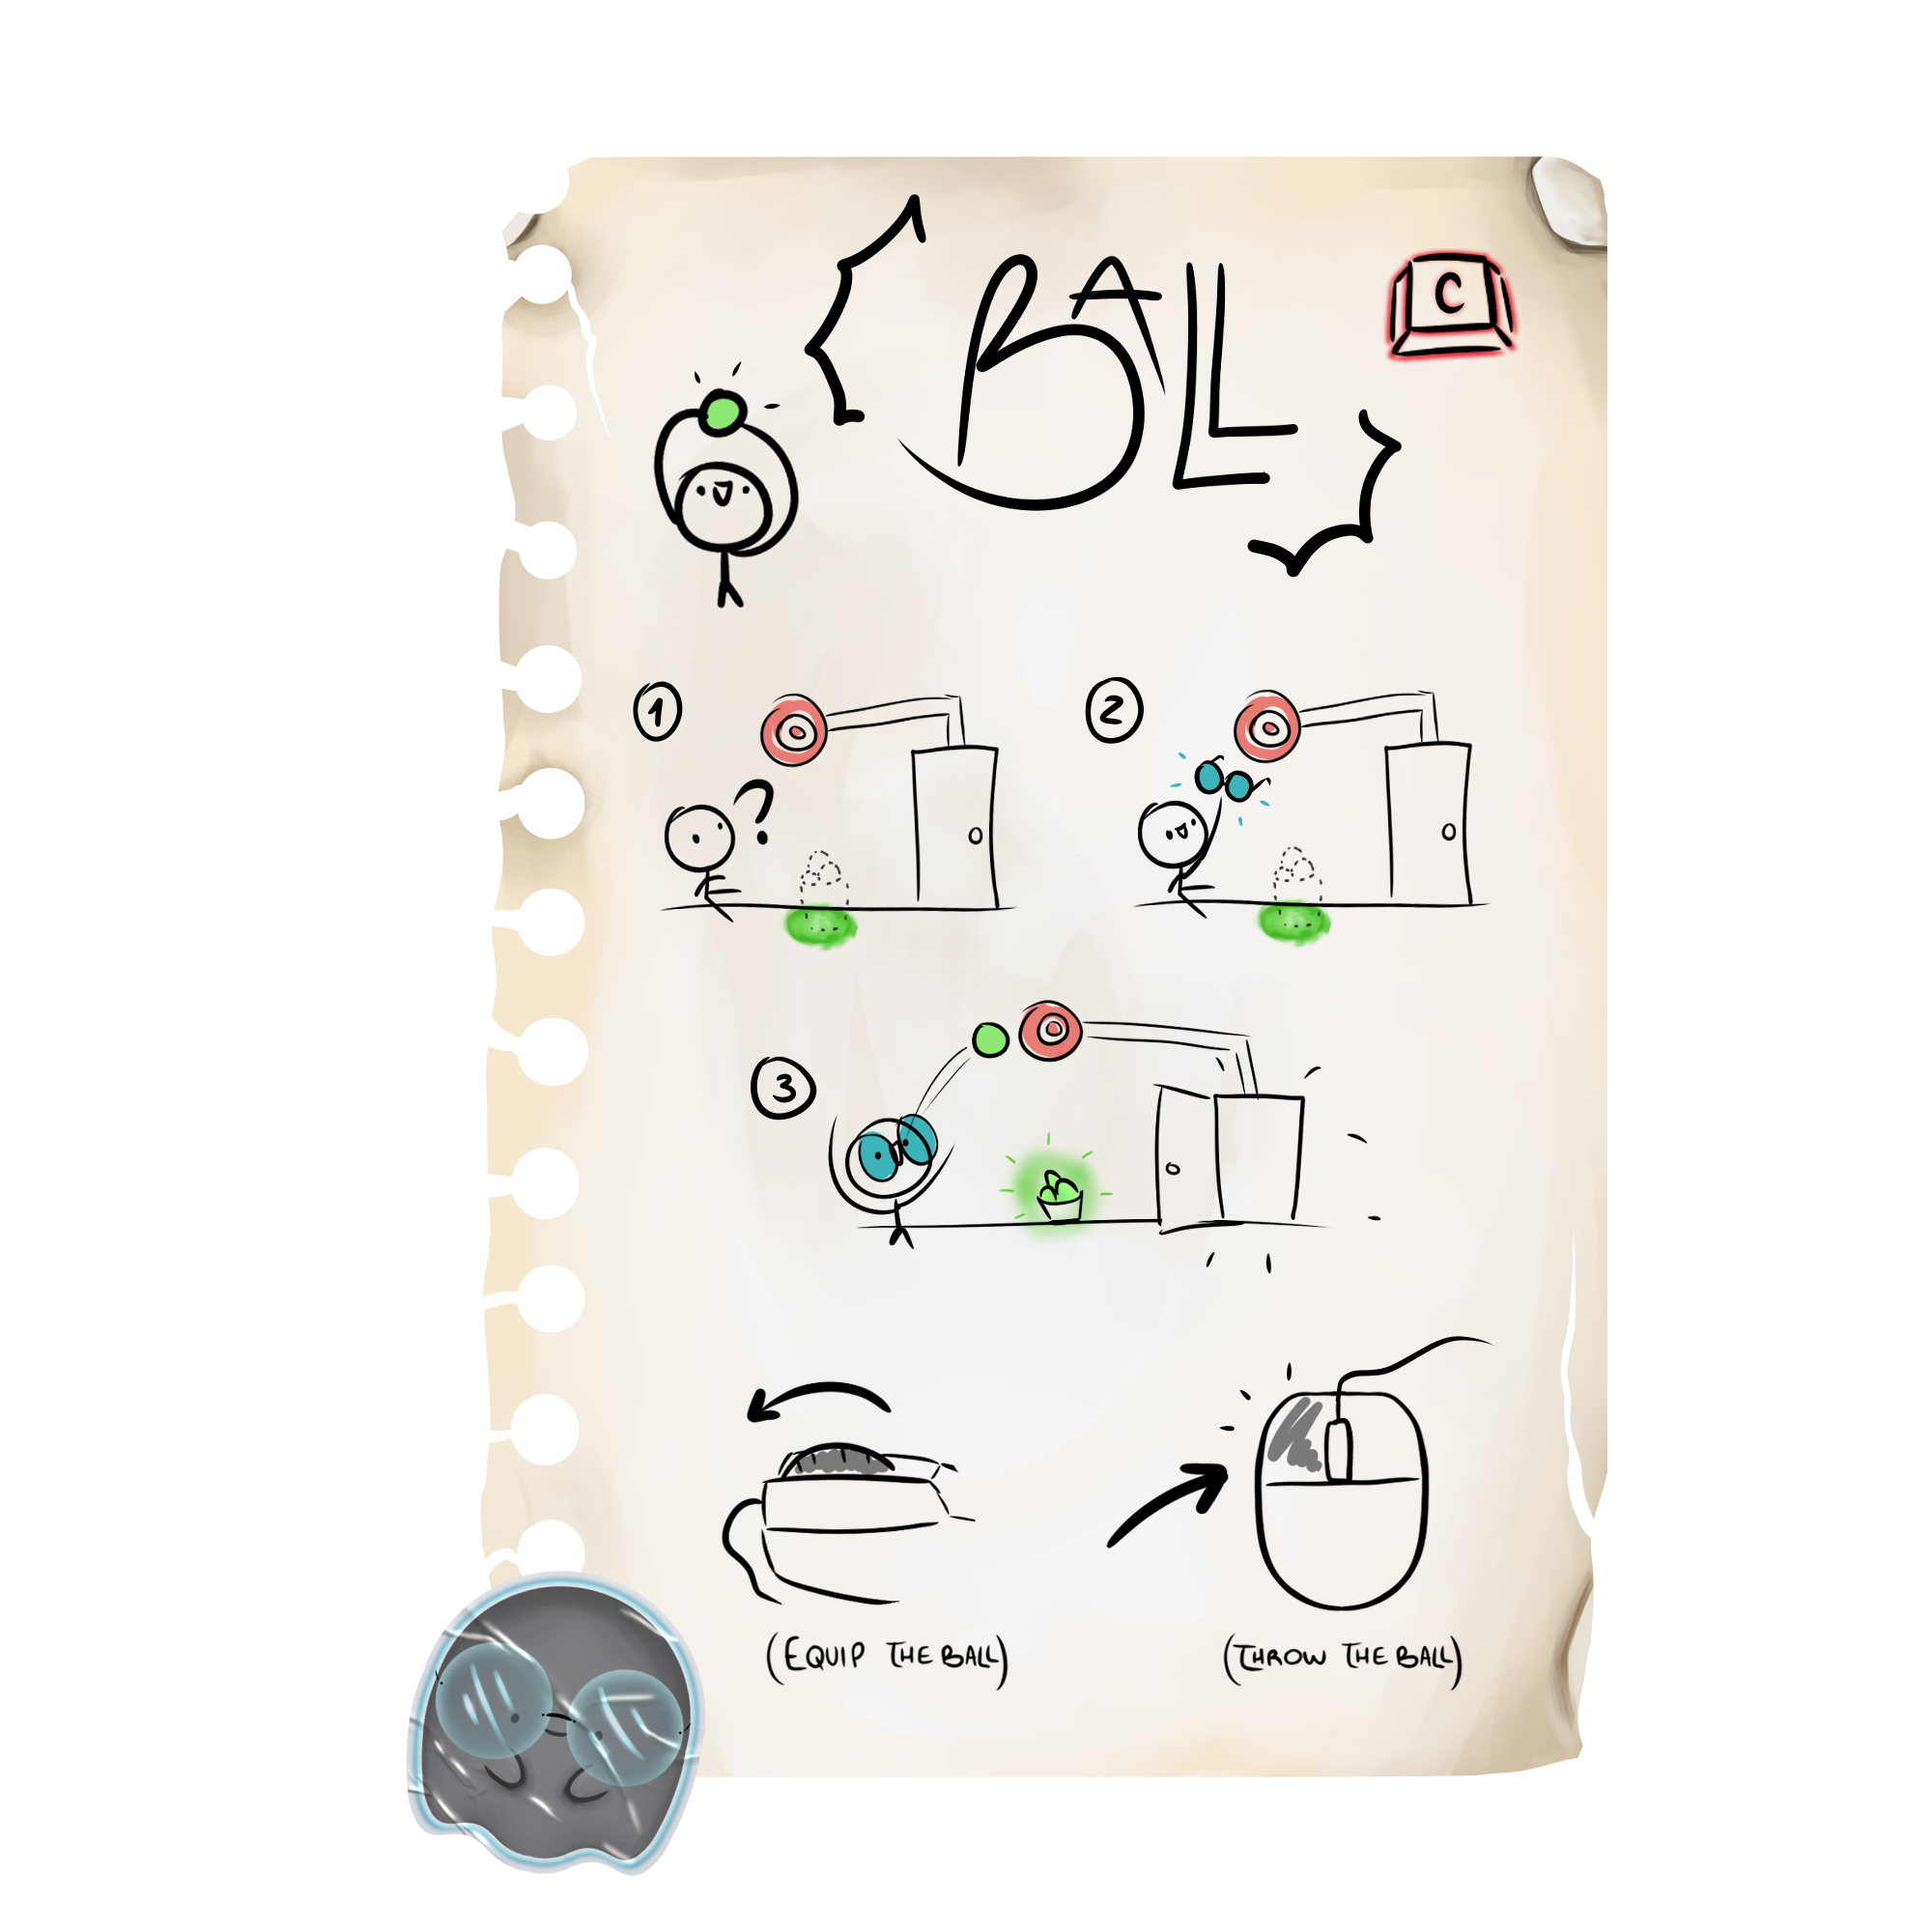 BALL
C
1
?
2
3
(EQUIP THE BALL)
(THROW THE BALL)